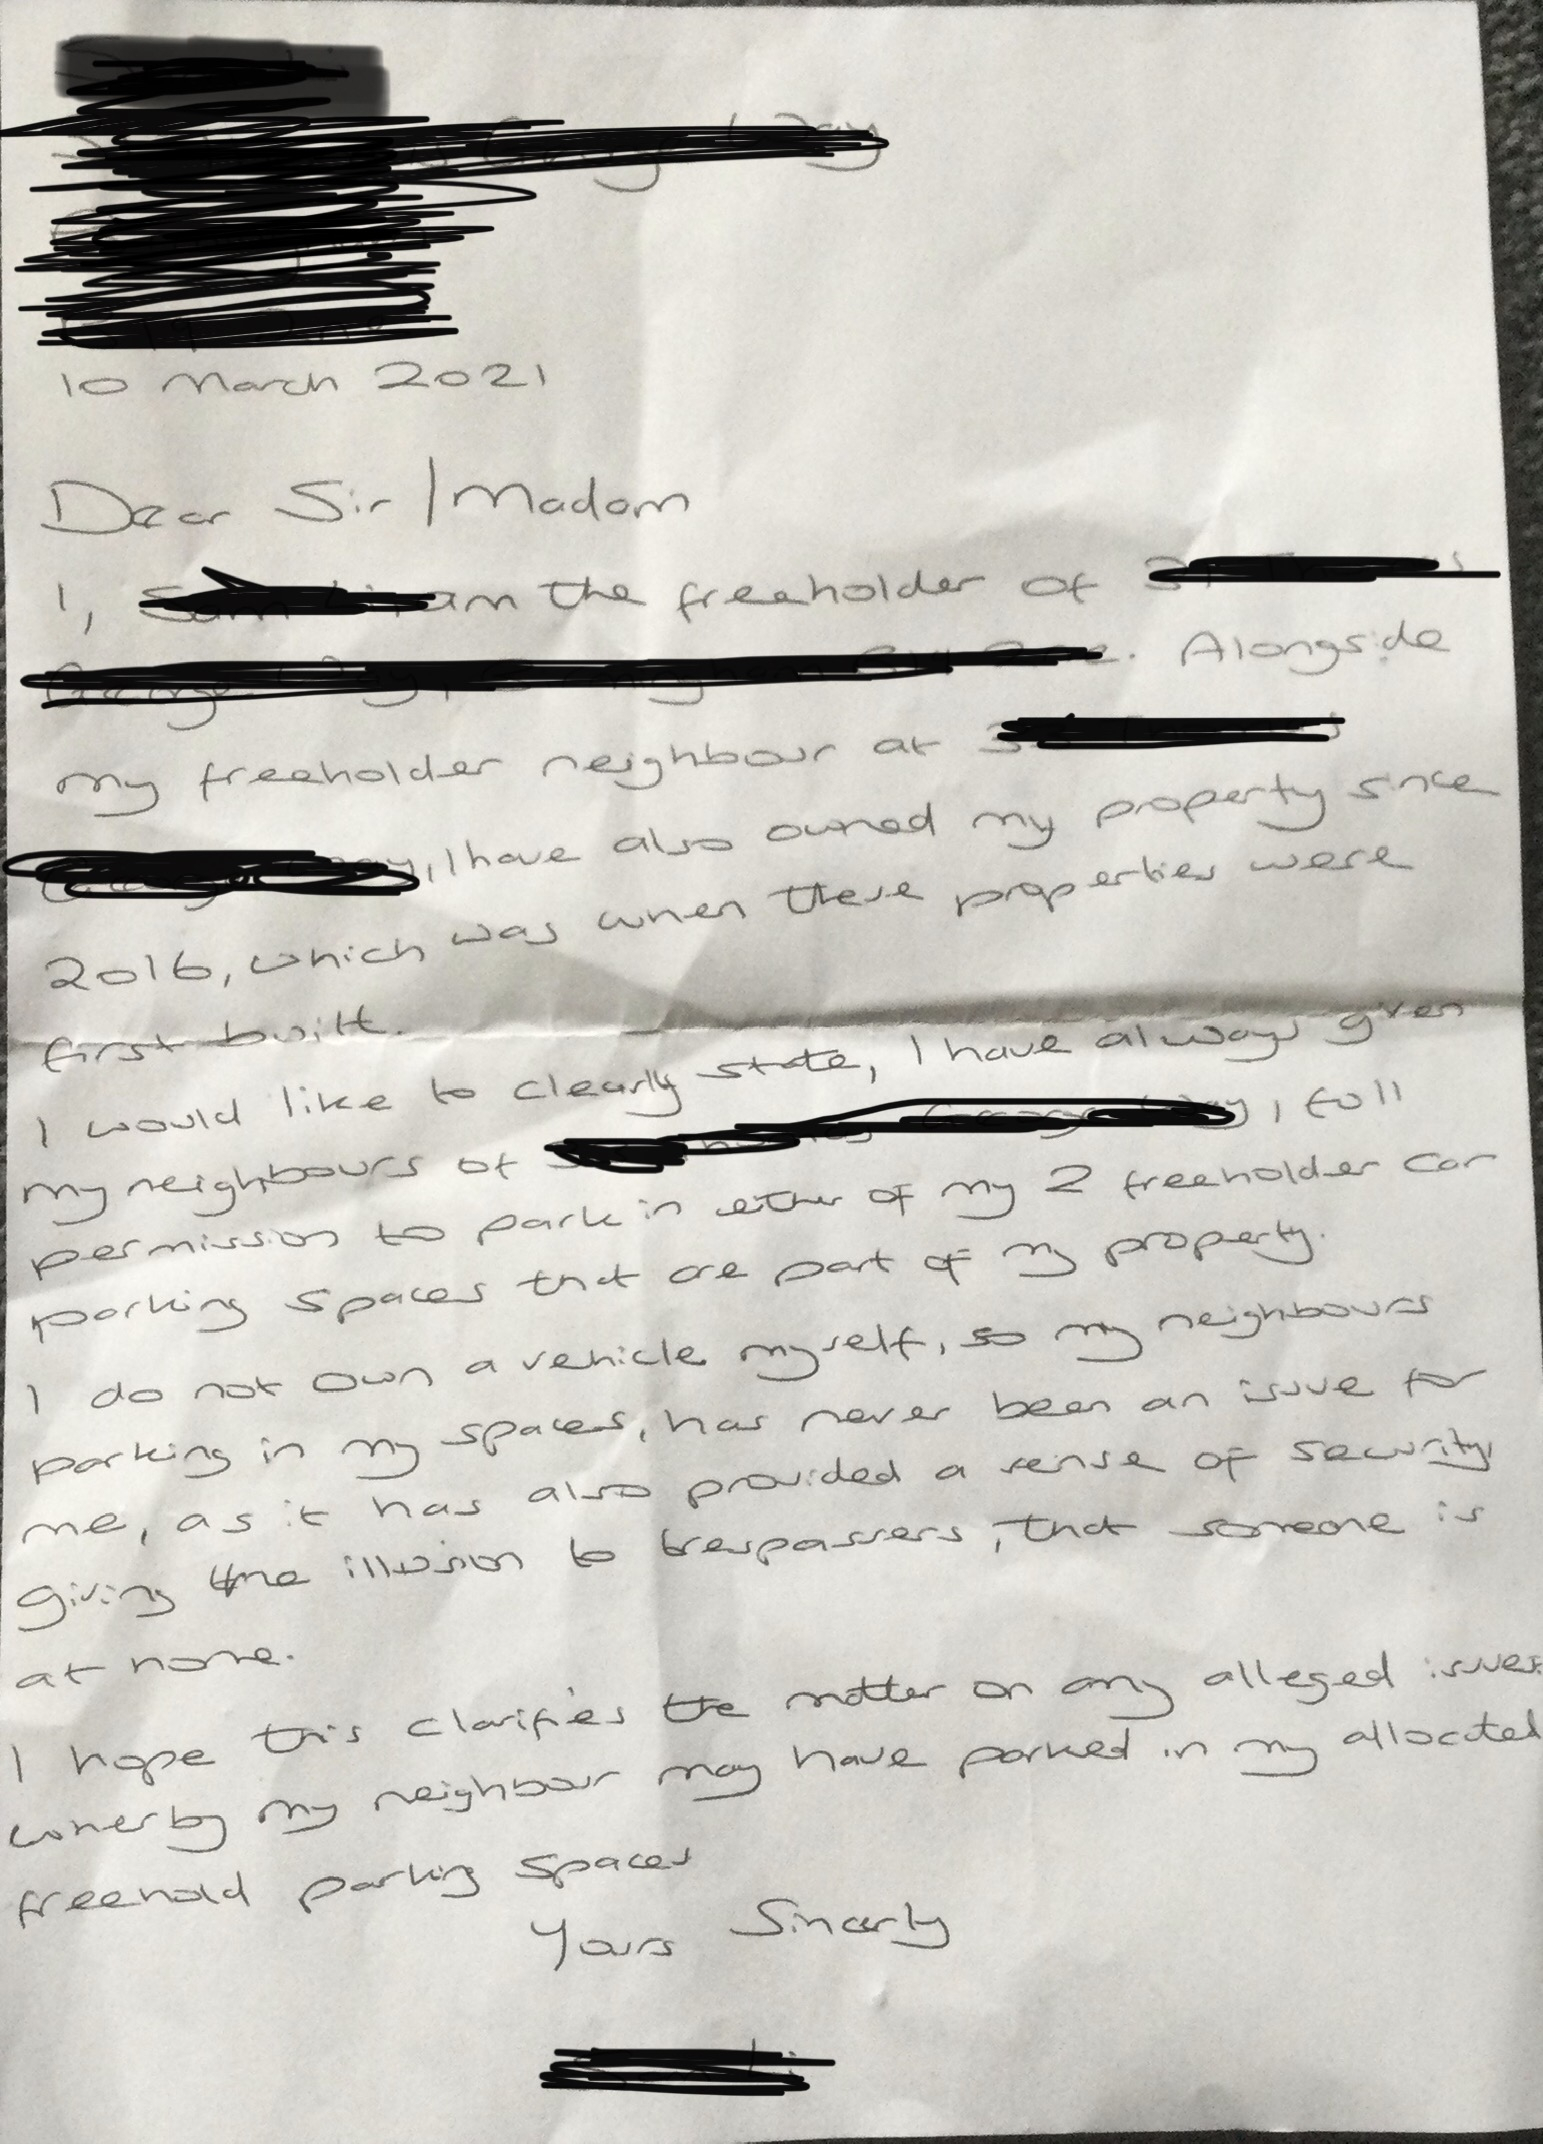 10 March 2021
Dear Sir/Madam
I, am the freeholder of
. Alongside
my freeholder neighbour at
, I have also owned my property since
2016, which was when these properties were
first built.
I would like to clearly state, I have always given
my neighbours of , full
permission to park in either of my 2 freeholder car
parking spaces that are part of my property.
I do not own a vehicle myself, so my neighbours
parking in my spaces, has never been an issue for
me, as it has also provided a sense of security,
giving the illusion to trespassers, that someone is
at home.
I hope this clarifies the matter on any alleged issues
wherby my neighbour may have parked in my allocated
freehold parking spaces
Yours Sincerly